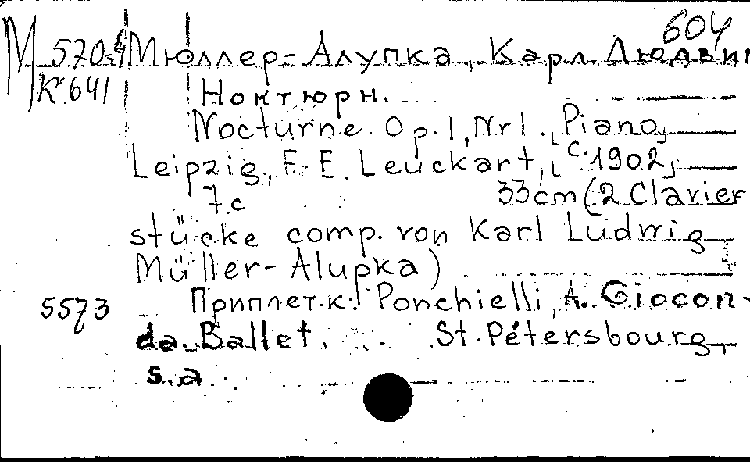 604
М 570.4 Мюллер-Алупка, Карл Людвиг
К.641 Ноктюрн.
Nocturne. Op.1, Nr1., Piano,
Leipzig, F. E. Leuckart, [c.1902,
7с 33cm (2 Clavier
stücke comp. von Karl Ludwig
Müller-Alupka)
5573 Приплет.к: Ponchielli, A. Giocon-
da. Ballet. St. Pétersbourg,
s.a.